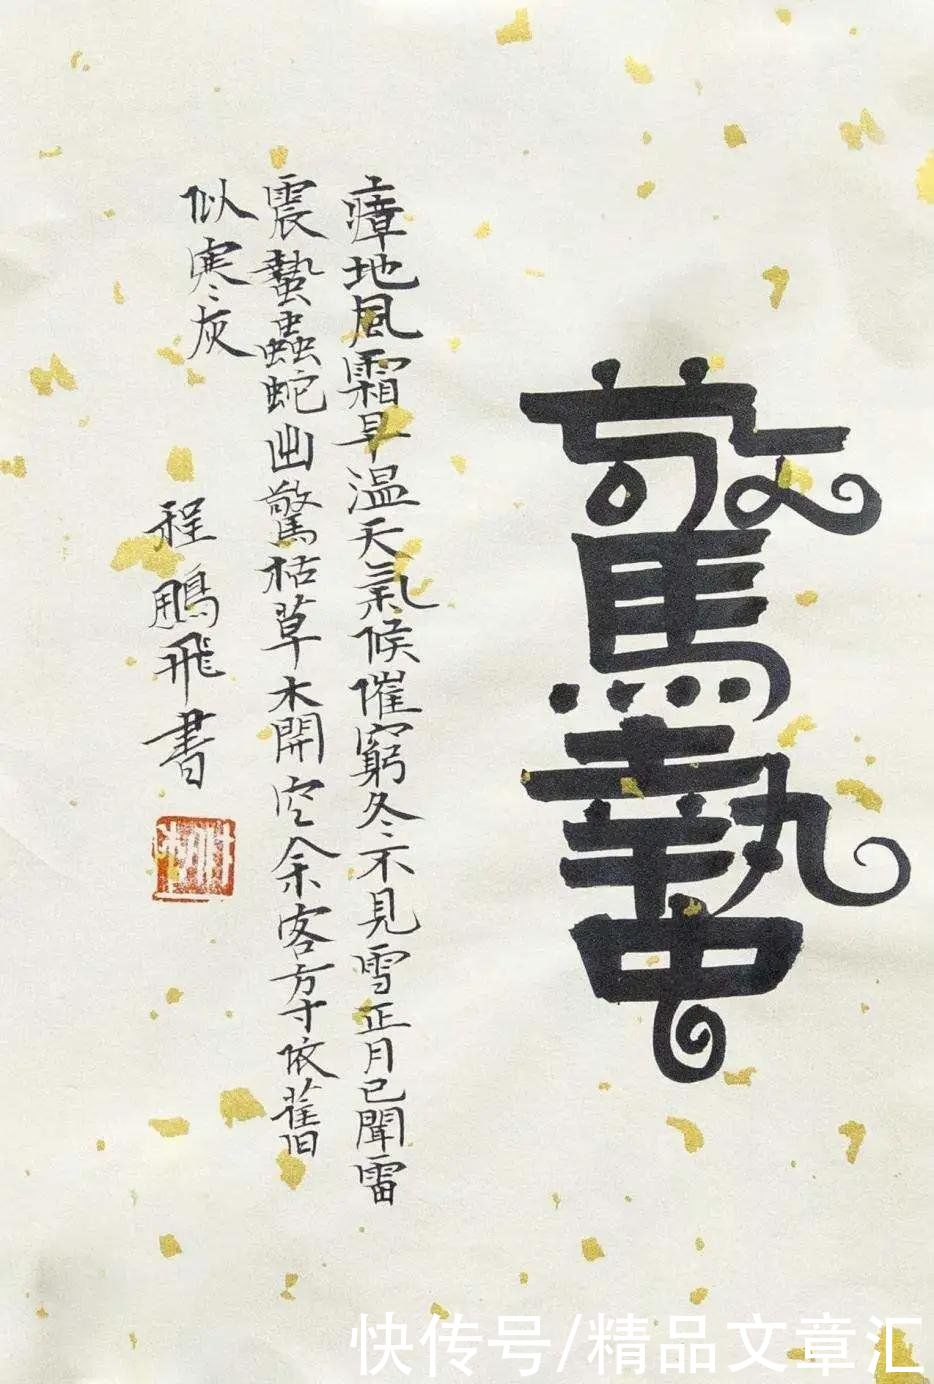 驚蟄
瘴地風霜早温天氣候催窮冬不見雪正月已聞雷
震蟄蟲蛇出驚枯草木開空余客方寸依舊
似寒灰
程鵬飛書
快传号/精品文章汇